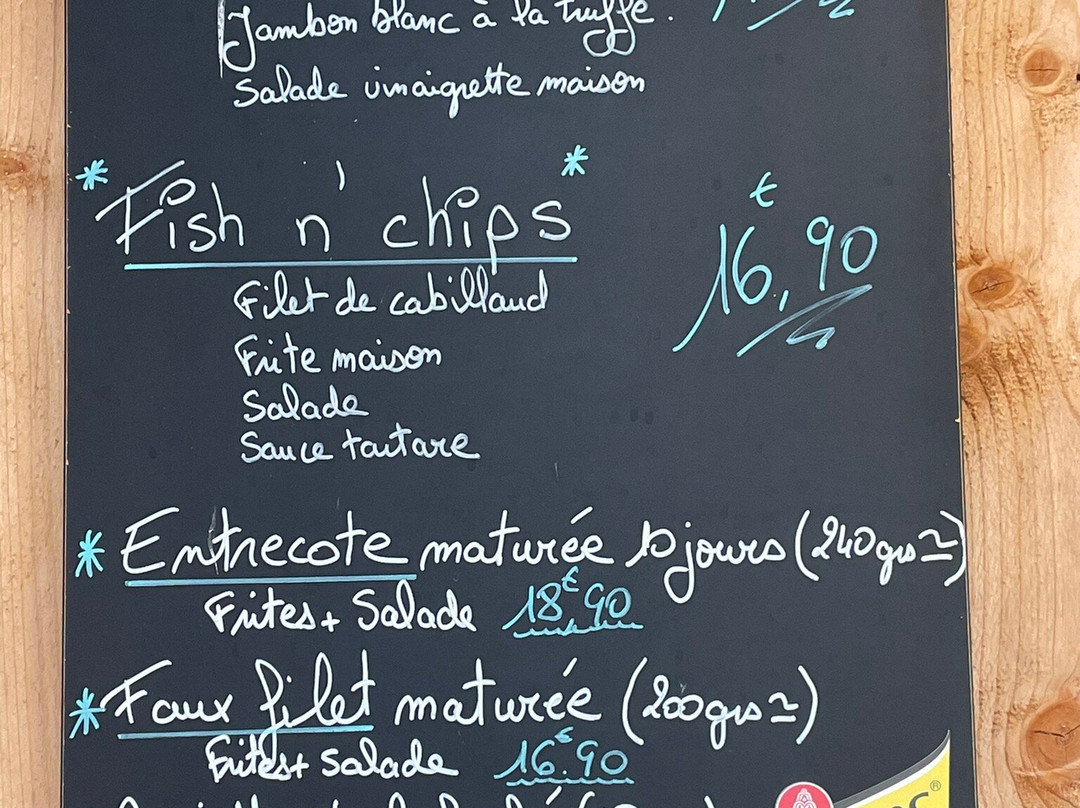 Jambon blanc à la truffe.
Salade vinaigrette maison
* Fish n' chips *
16,90 €
Filet de cabillaud
Frite maison
Salade
Sauce tartare
* Entrecote maturée 10 jours (240grs ≃)
Frites + Salade 18€90
* Faux filet maturée (200grs ≃)
Frites + Salade 16€.90